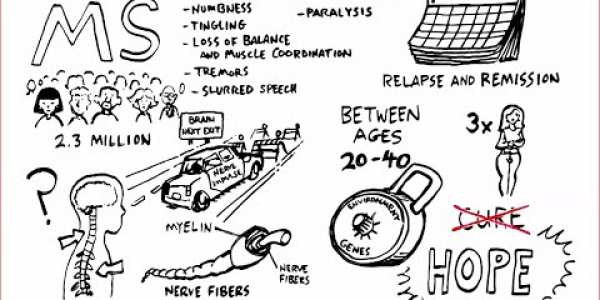 MS
- NUMBNESS
- TINGLING
- LOSS OF BALANCE
AND MUSCLE COORDINATION
- TREMORS
- SLURRED SPEECH
- PARALYSIS
RELAPSE AND REMISSION
2.3 MILLION
BRAIN
NEXT EXIT
NERVE
IMPULSE
BETWEEN
AGES
20-40
3x
?
MYELIN
NERVE
FIBERS
NERVE FIBERS
ENVIRONMENT
GENES
CURE
HOPE